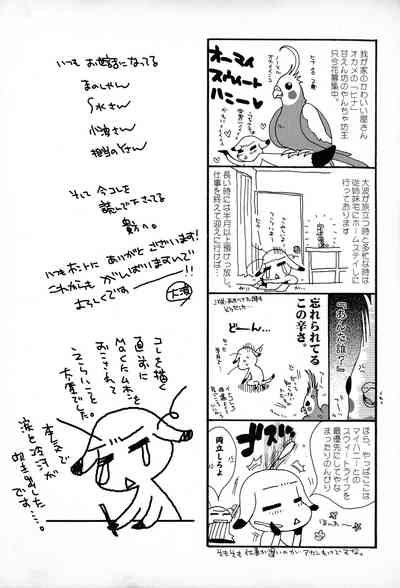 我が家のかわいい屋さん
オカメの「ヒナ」
甘えん坊のやんちゃ坊主
只今花嫁募集中。
オーマイ
スウィート
ハニー♥
大波が旅立つ時と多忙な時は
従姉妹宅にホームステイしに
行っております
長い時には半月以上預けっ放し。
仕事を終えて迎えに行けば…
『あんた誰？』
忘れられてる
この辛さ。
どーん…
ほら、やっぱここは
マイハニーとの
スウィートライフを
最優先にしてやな
まったりのんびり
両立しろよ
そもそも仕事が遅いのがアカンわけですな。
いつもお世話になってる
まのしゃん
S水さん
小波さん
担当のYさん
そして今コレを
読んで下さってる
貴方へ。
いつもホントにありがとうございます!
これからもがんばりますんで!!
よろしくですー
大波
コレを描く
直前に
Macにムホンを
おこされて
えらいこと
大変でした。
本気で
涙と冷汗が
吹き出したです…。